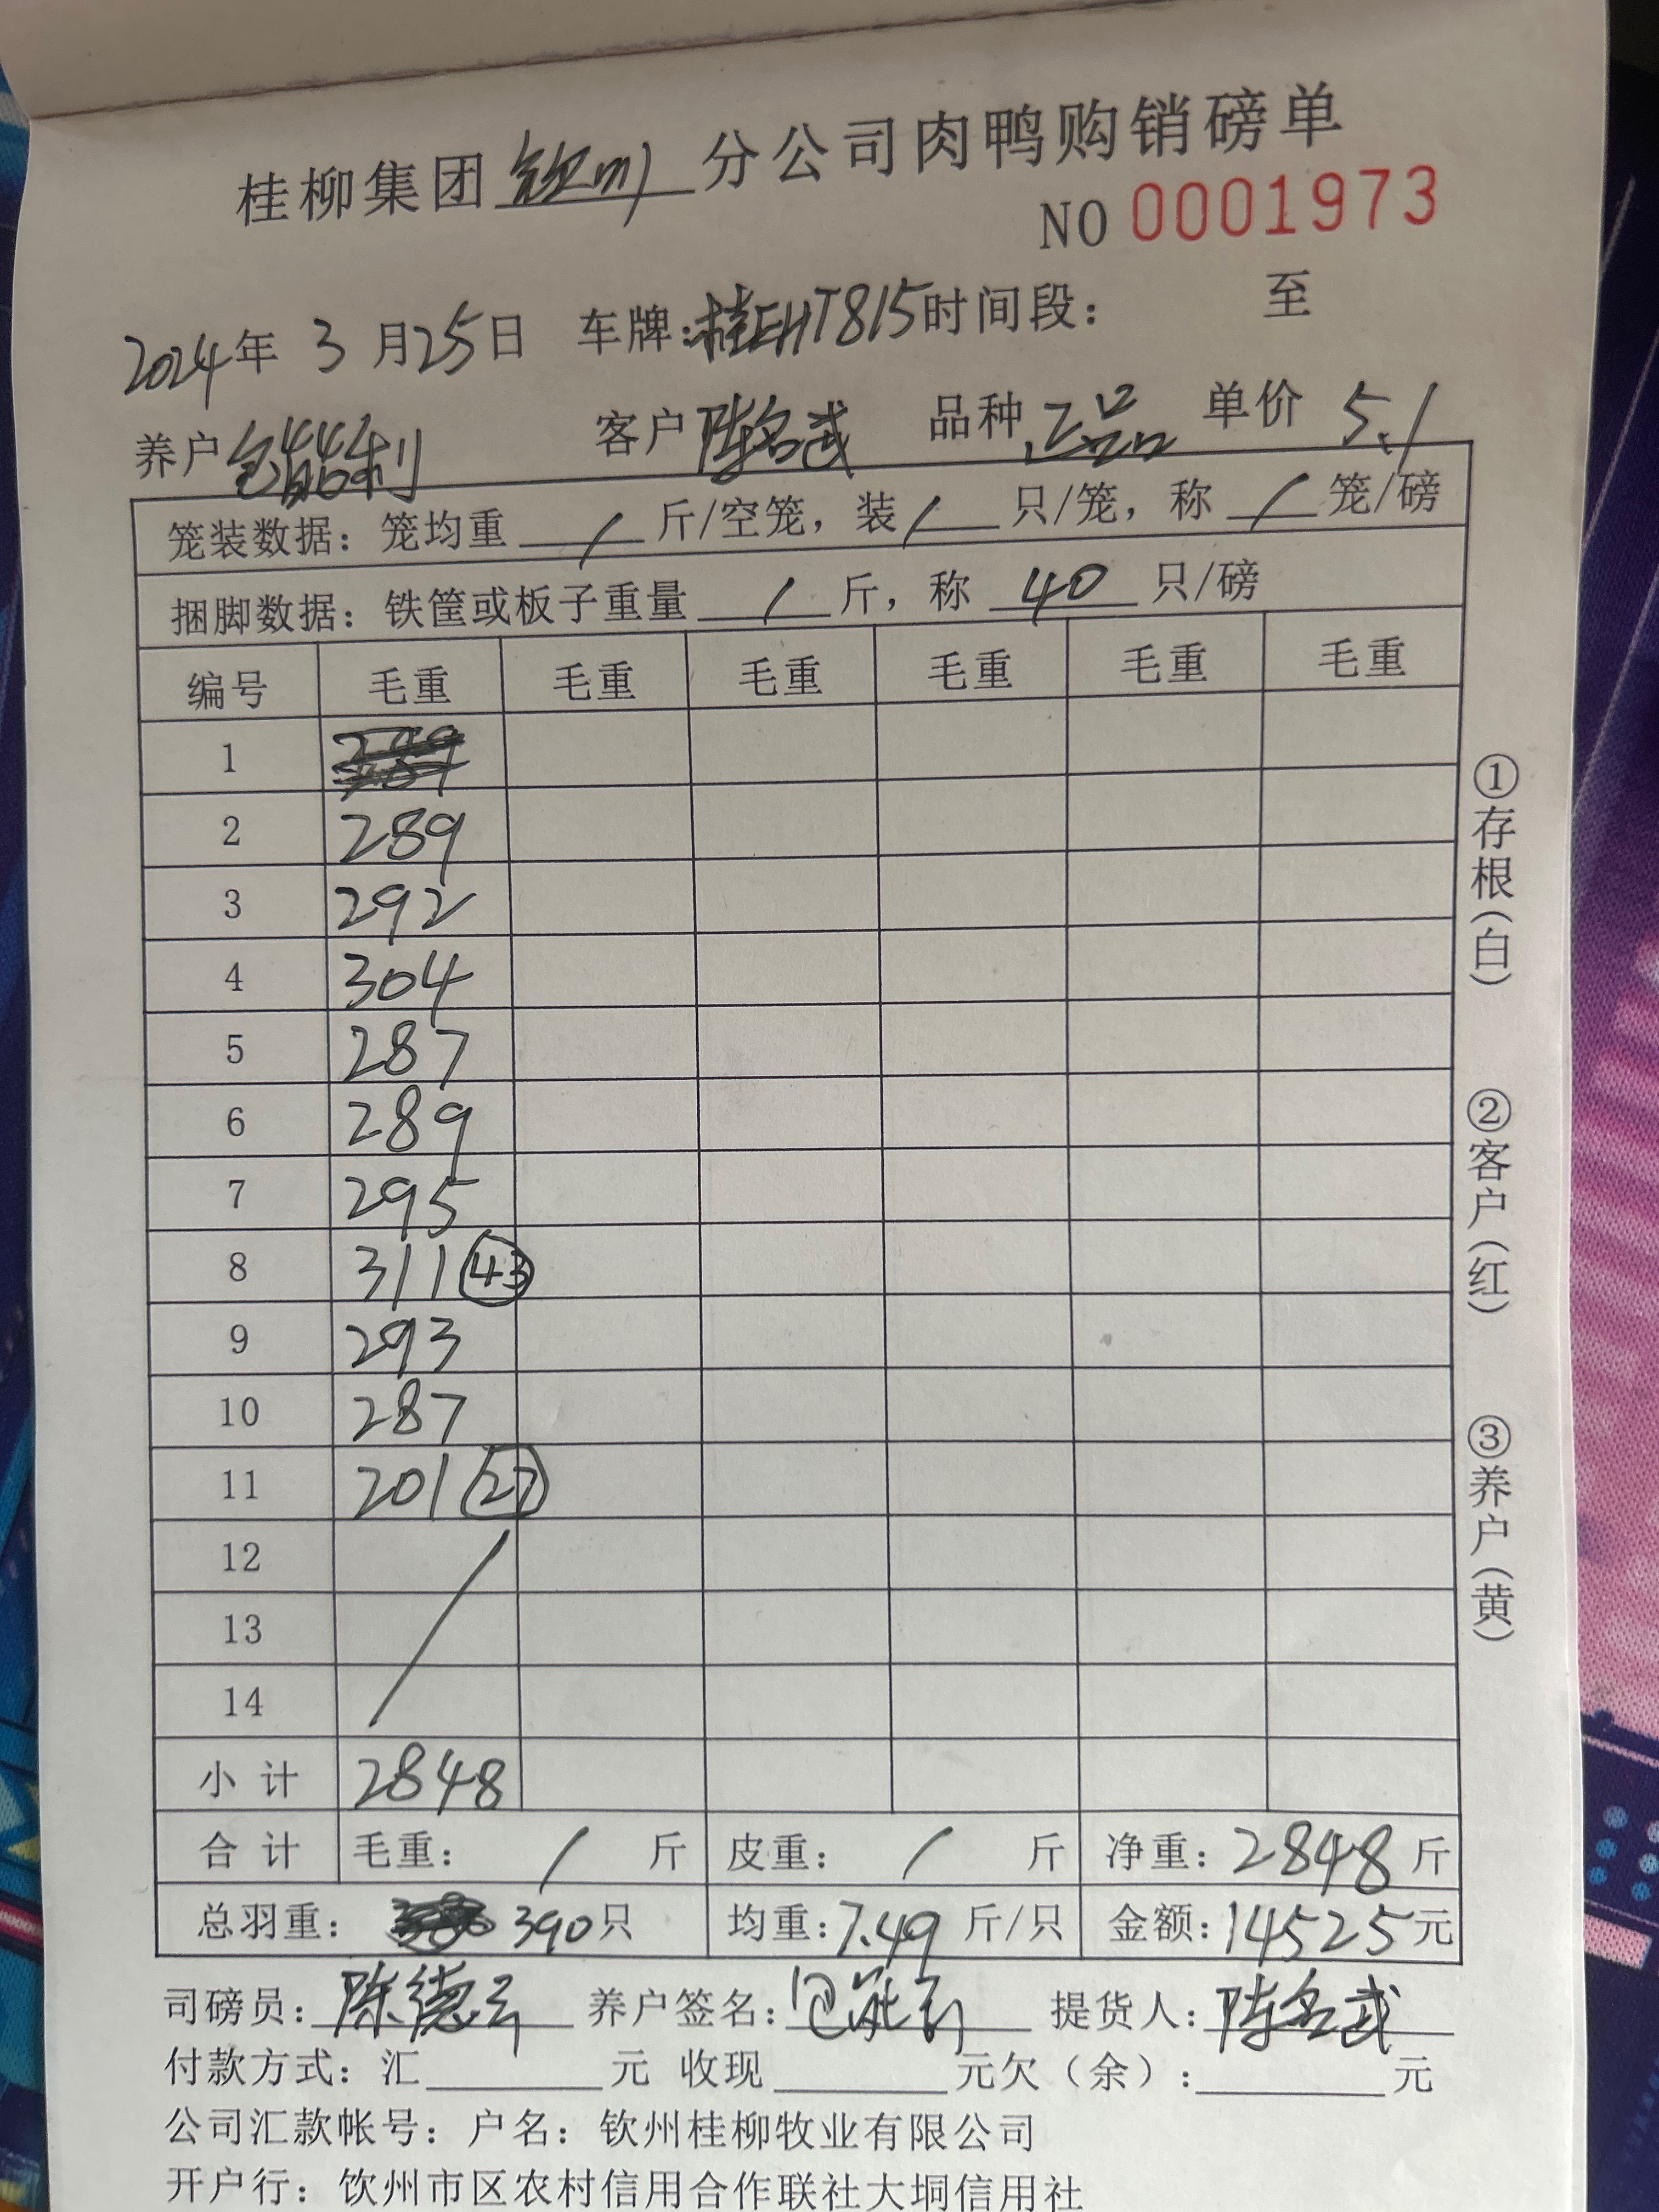 桂柳集团钦州分公司肉鸭购销磅单
NO 0001973
2024年 3 月25日 车牌:桂EHT815时间段: 至
养户 客户 陈名武 品种 正品 单价 5.1
笼装数据: 笼均重 / 斤/空笼, 装 / 只/笼, 称 / 笼/磅
捆脚数据: 铁筐或板子重量 / 斤, 称 40 只/磅
编号 毛重 毛重 毛重 毛重 毛重 毛重
1
2 289
3 292
4 304
5 287
6 289
7 295
8 311 43
9 293
10 287
11 201 27
12
13
14
小计 2848
合计 毛重: / 斤 皮重: / 斤 净重: 2848 斤
总羽重: 390只 均重: 7.49 斤/只 金额: 14525元
司磅员: 陈德云 养户签名: 提货人: 陈名武
付款方式: 汇 元 收现 元欠(余): 元
公司汇款帐号: 户名: 钦州桂柳牧业有限公司
开户行: 钦州市区农村信用合作联社大垌信用社
①存根(白) ②客户(红) ③养户(黄)